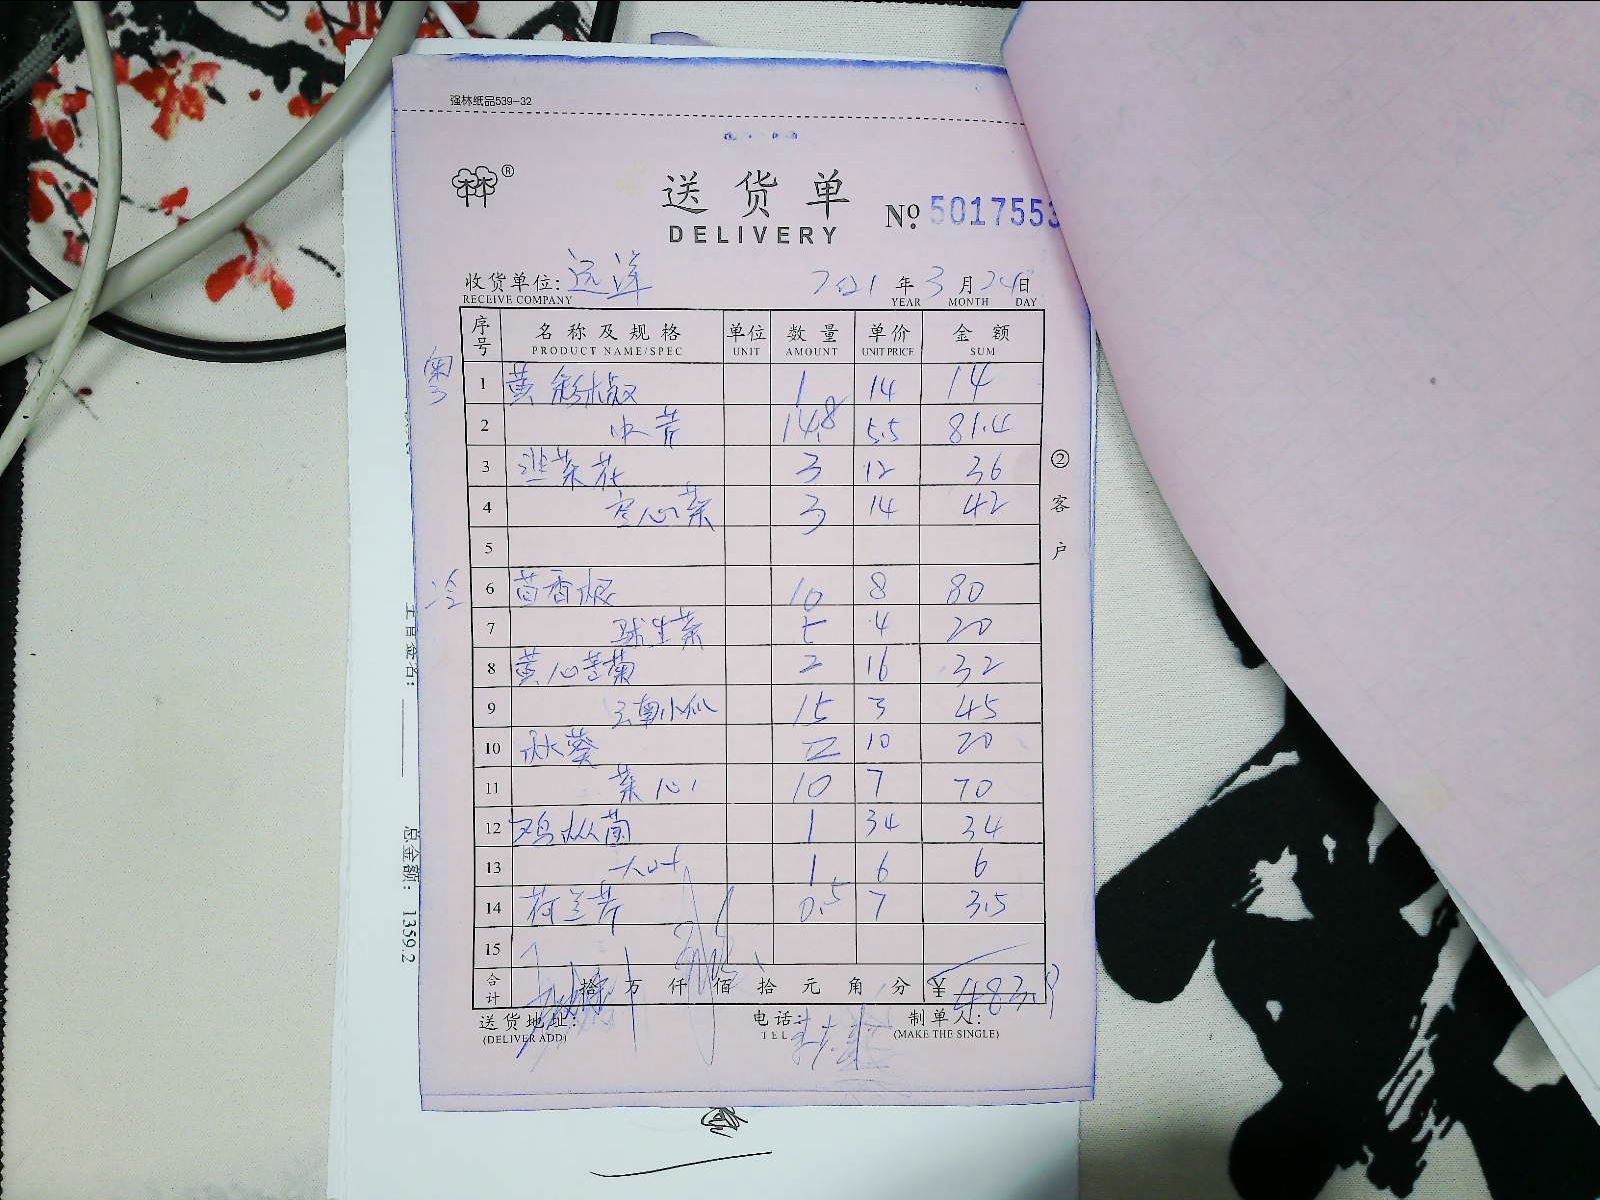 强林纸品539-32
送货单
DELIVERY
№ 5017553
收货单位: 远洋 2021 年 3 月 24 日
RECEIVE COMPANY YEAR MONTH DAY
序号 名称及规格 单位 数量 单价 金额
PRODUCT NAME/SPEC UNIT AMOUNT UNIT PRICE SUM
粤
1 黄彩椒 1 14 14
2 中芹 14.8 5.5 81.4
3 韭菜花 3 12 36
4 空心菜 3 14 42
5
冷
6 茴香根 10 8 80
7 球生菜 5 4 20
8 黄心苦菊 2 16 32
9 云南小瓜 15 3 45
10 秋葵 2 10 20
11 菜心 10 7 70
12 鸡枞菌 1 34 34
13 大叶 1 6 6
14 荷兰芹 0.5 7 3.5
15
合计 拾 万 仟 佰 拾 元 角 分 ¥ 483.9
送货地址: 电话: 制单人:
(DELIVER ADD) TEL (MAKE THE SINGLE)
②客户
主管签名:
总金额: 1359.2